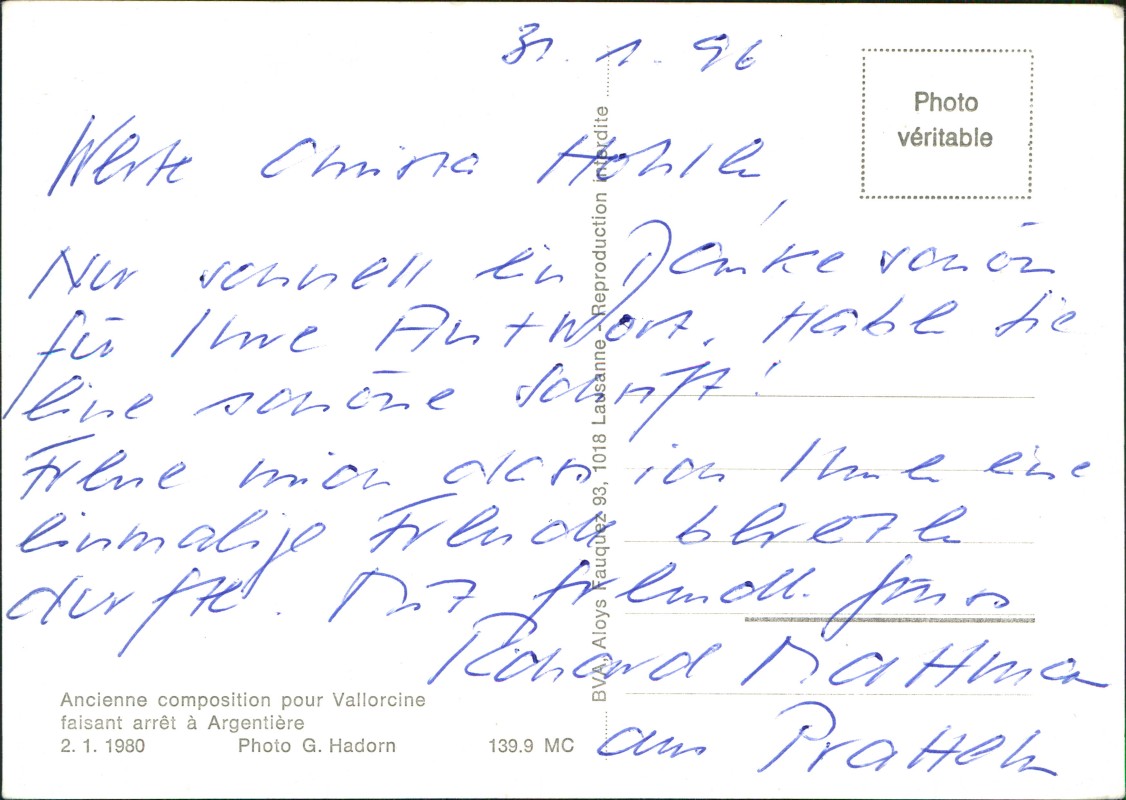 31. 1. 96
Photo
véritable
Werte Christa Hohler,
Nur schnell ein Dankeschön
für Ihre Antwort. Haben Sie
eine schöne Schrift!
Freue mich dass ich Ihnen eine
einmalige Freude bereiten
durfte. Mit freundl. Gruss
Richard
aus Pratteln
BVA, Aloys Fauquez 93, 1018 Lausanne - Reproduction interdite
Ancienne composition pour Vallorcine
faisant arrêt à Argentière
2. 1. 1980 Photo G. Hadorn 139.9 MC